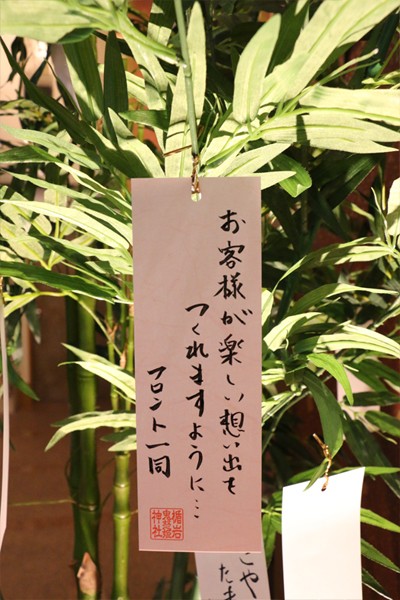 お客様が楽しい想い出を
つくれますように…
フロント一同
神社
こや
たま